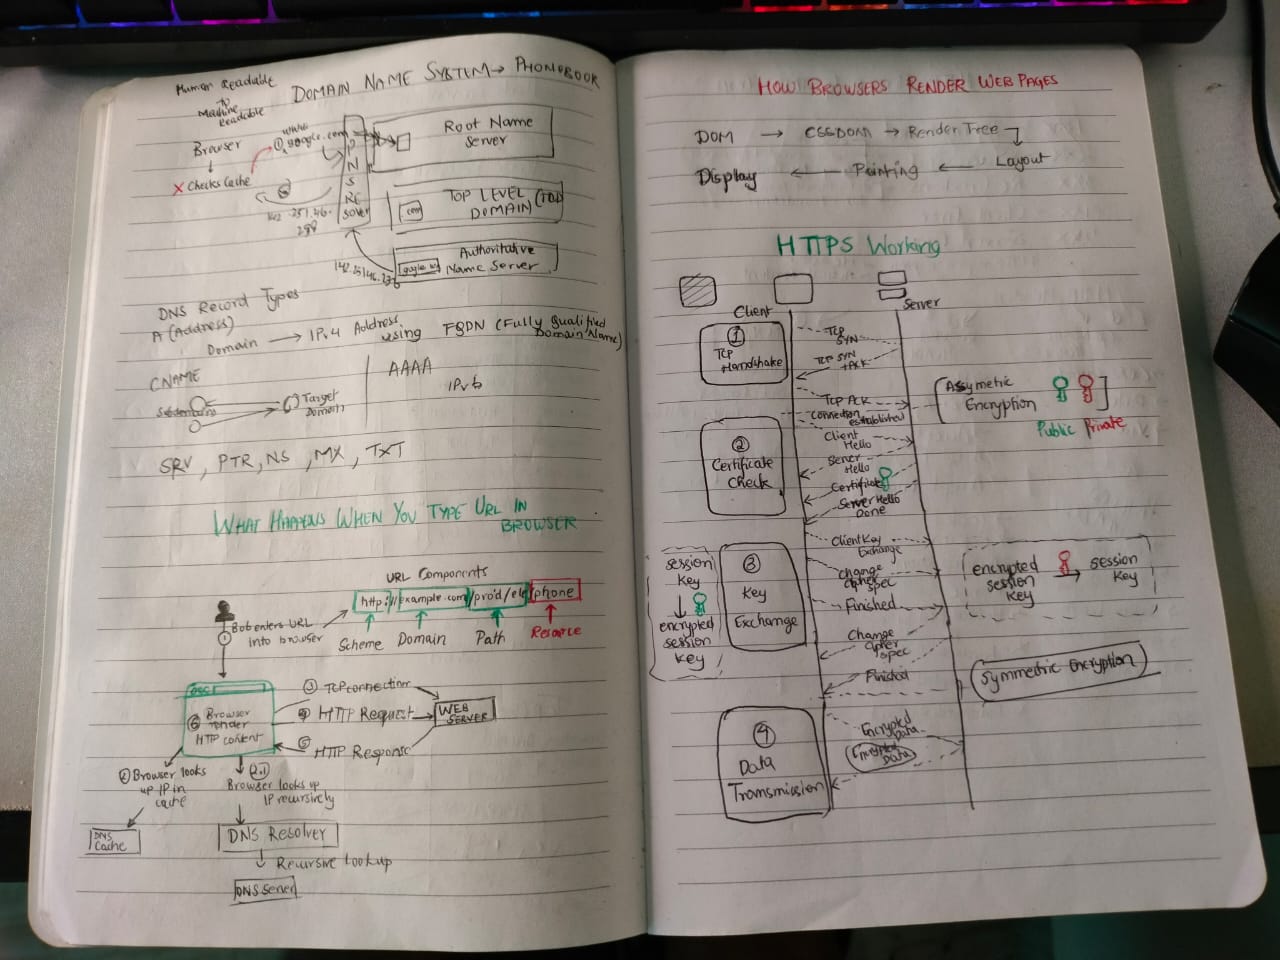 Human Readable
to
Machine
Readable
DOMAIN NAME SYSTEM → PHONEBOOK
Browser
X Checks Cache
① www.
google.com
142.251.46.
Root Name
Server
.com
TOP LEVEL
DOMAIN
Authoritative
Name Server
DNS Record Types
A (Address)
Domain → IPv4 Address
using FQDN (Fully Qualified
Domain Name)
CNAME
Subdomains
Target
Domain
AAAA
IPv6
SRV, PTR, NS, MX, TXT
WHAT HAPPENS WHEN YOU TYPE URL IN
BROWSER
URL Components
http://example.com/prod/ele/phone
Scheme Domain Path Resource
① Bob enters URL
into browser
③ TCP connection
④ HTTP Request
⑤ HTTP Response
WEB
SERVER
⑥ Browser
render
HTTP content
② Browser looks
up IP in
cache
2.1
Browser looks up
IP recursively
DNS
Cache
DNS Resolver
↓ Recursive Lookup
DNS Server
HOW BROWSERS RENDER WEB PAGES
DOM → CSSDOM → Render Tree
Display ← Painting ← Layout
HTTPS Working
Client
Server
①
TCP
Handshake
TCP
SYN
TCP SYN
+ACK
TCP ACK
connection
established
Assymetric
Encryption
Public Private
②
Certificate
Check
Client
Hello
Server
Hello
Certificate
Server Hello
Done
③
Key
Exchange
session
key
↓
encrypted
session
key
Client Key
Exchange
Change
Cipher
Spec
Finished
Change
Cipher
Spec
Finished
encrypted
session
key
→ session
key
Symmetric Encryption
④
Data
Transmission
Encrypted
Data
Encrypted
Data